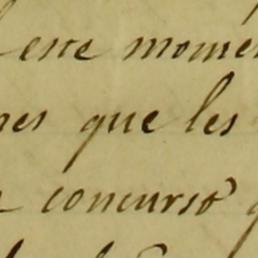 este momen
nes que les
concurso q